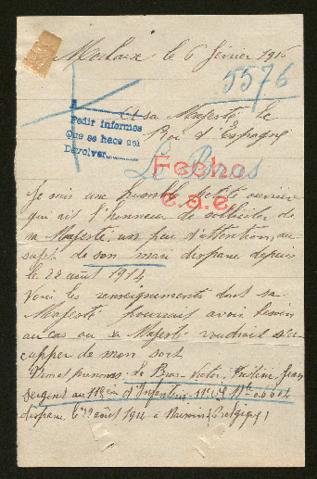 Morlaix le 6 février 1916
5576
A sa Majesté le
Roi d'Espagne
Pedir informes
Que se hace así
Devolver
Le Bras
Fecho
Je suis une humble petite ouvrière
qui ait l'honneur de solliciter de
sa Majesté, un peu d'attention, au
sujet de son mari disparu depuis
le 22 août 1914
Voici les renseignements dont sa
Majesté pourrait avoir besoin
au cas ou sa Majesté voudrait s'oc
cupper de mon sort
Le Bras Victor, Jean
Sergent au 118 d'Infanterie
disparu le 22 août 1914 à (Belgique)